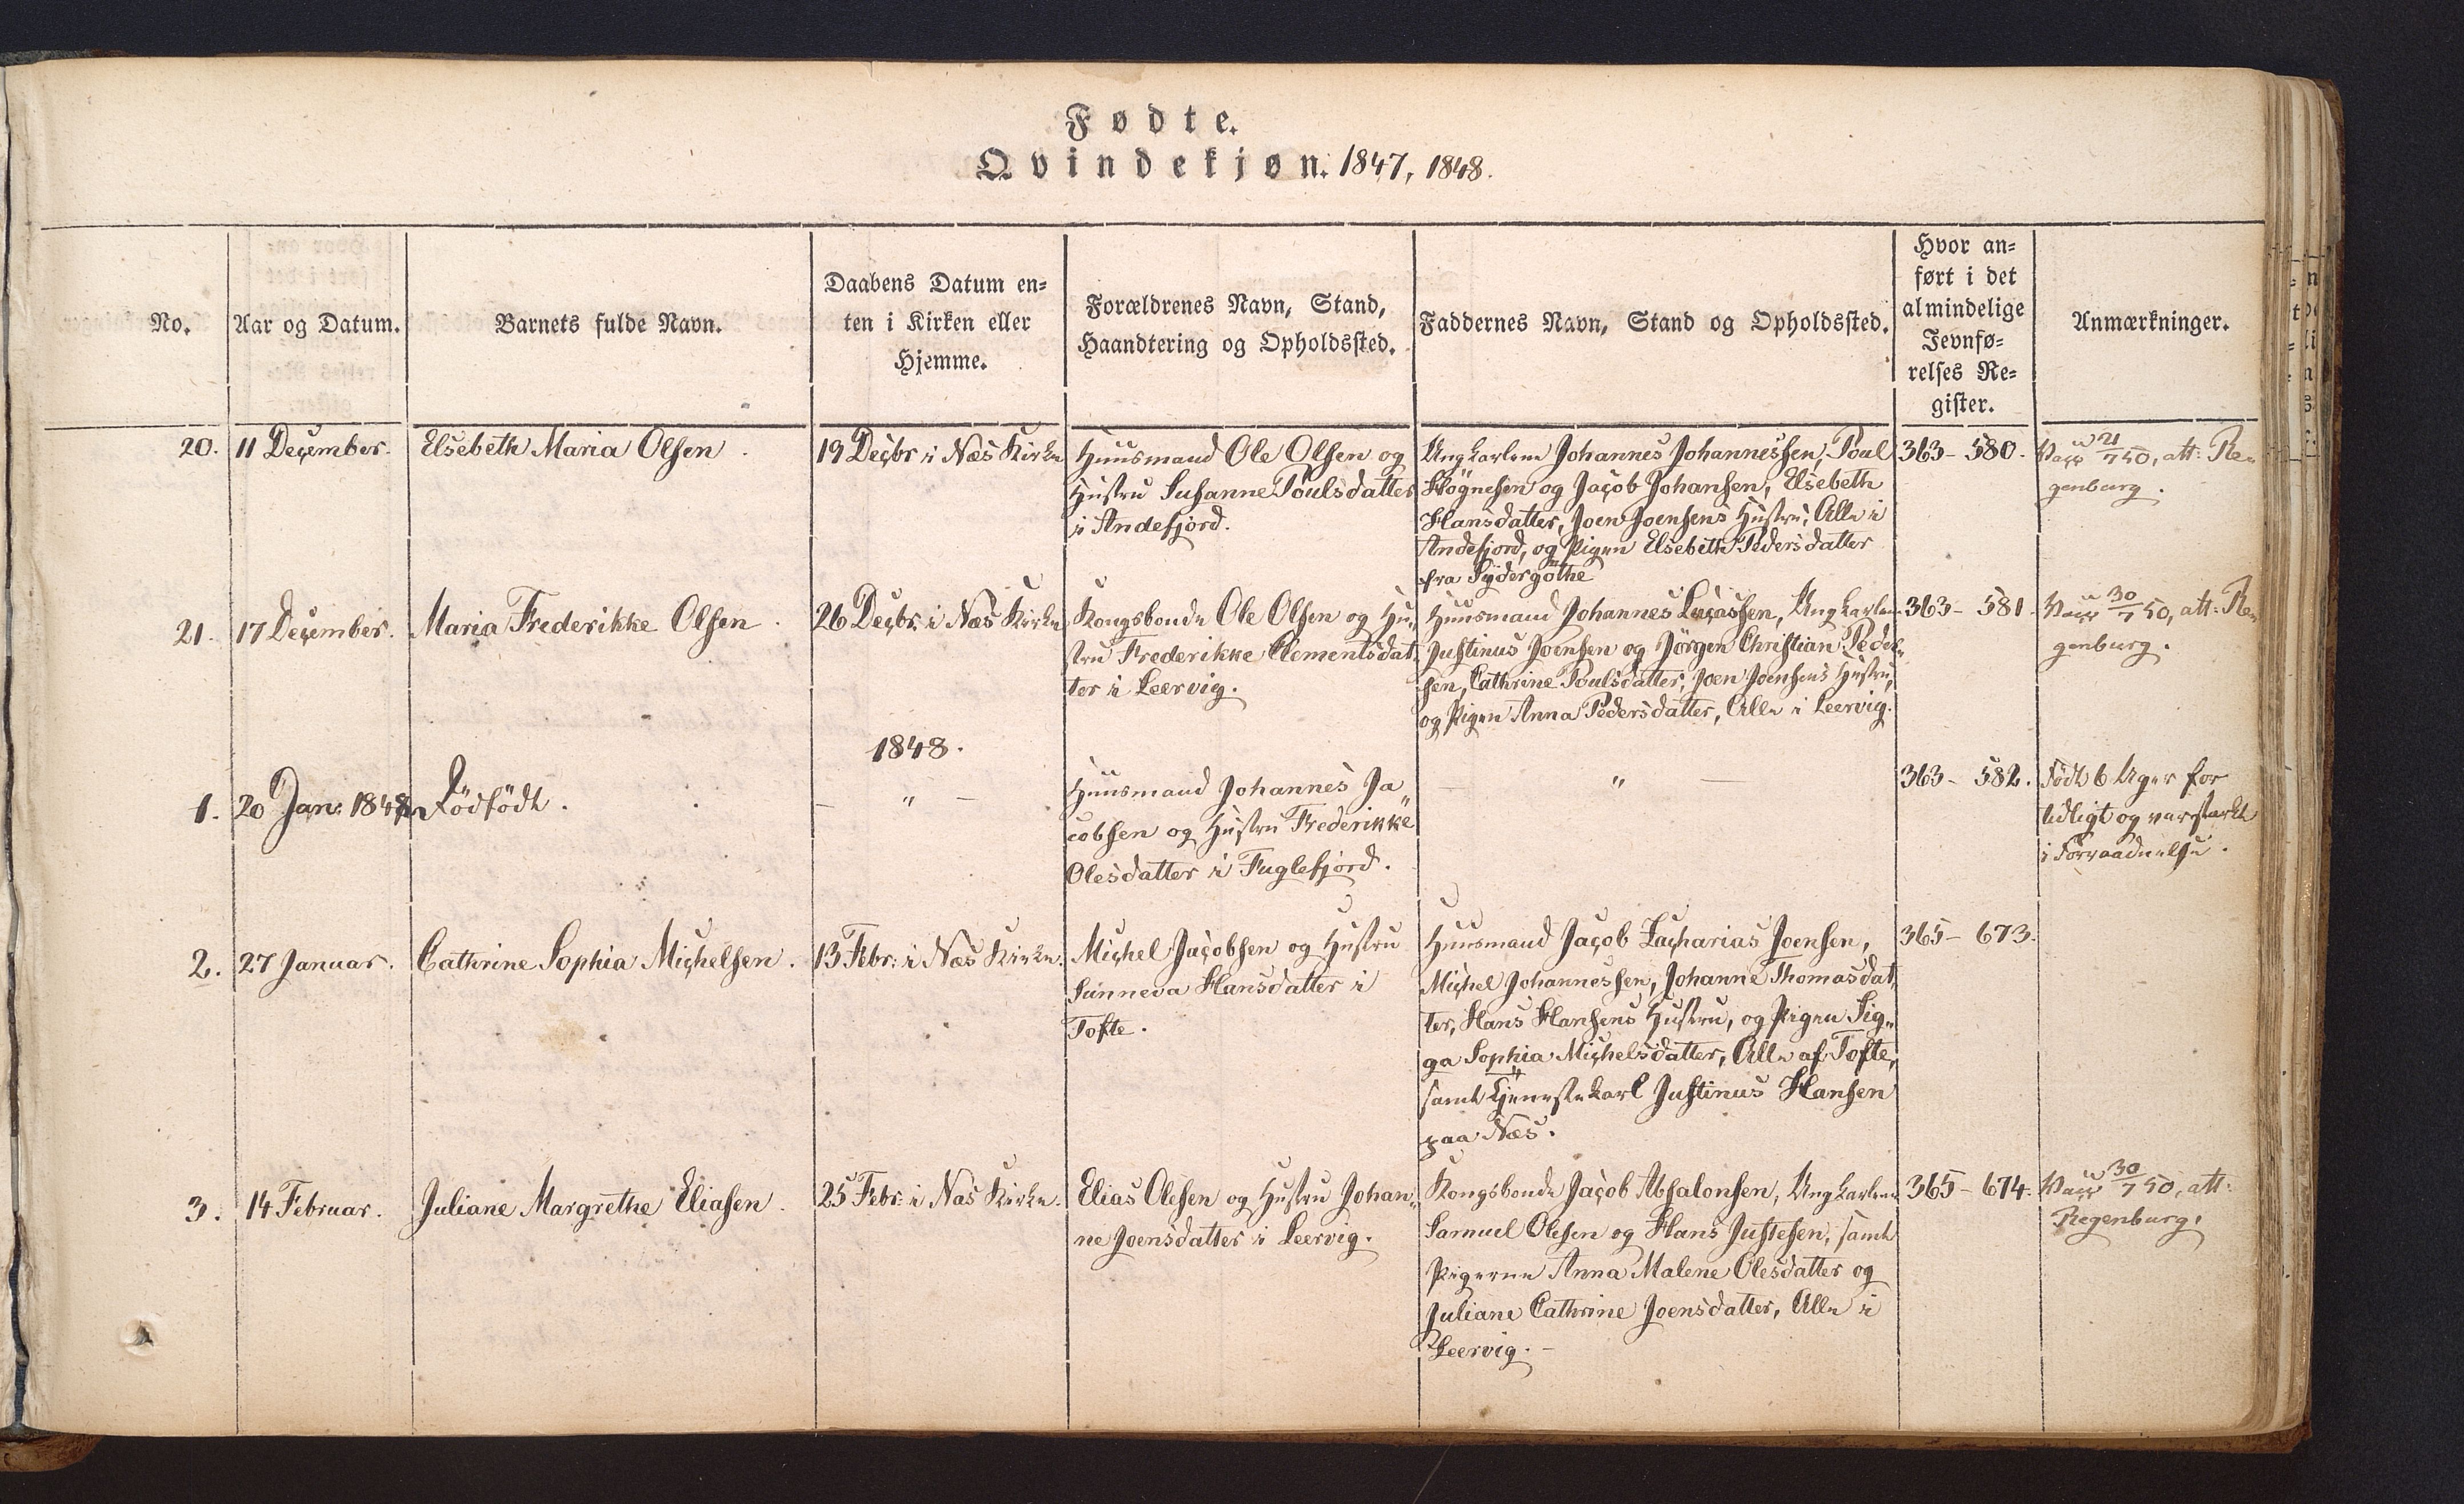 Fødte.
Qvindekjøn. 1847, 1848.
No.
Aar og Datum.
Barnets fulde Navn.
Daabens Datum en=
ten i Kirken eller
Hjemme.
Forældrenes Navn, Stand,
Haandtering og Opholdssted.
Faddernes Navn, Stand og Opholdssted.
Hvor an=
ført i det
almindelige
Jevnfø=
relses Re=
gister.
Anmærkninger.
20.
11 December.
Elsebeth Maria Olsen.
19 Decbr i Næs Kirke
Huusmand Ole Olsen og
Hustru Susanne Poulsdatter
i Andefjord.
Ungkarlene Johannes Johannessen, Poul
Høgnesen og Jacob Johansen, Elsebeth
Hansdatter, Joen Joensens Hustru, Alle i
Andefjord, og Pigen Elsebeth Pedersdatter
fra Sydergøthe
363 - 580.
Vacc 21/7 50, att: Re=
genburg.
21.
17 December.
Maria Frederikke Olsen.
26 Decbr. i Næs Kirke
Kongsbonde Ole Olsen og Hu=
stru Frederikke Clementsdat=
ter i Leervig.
Huusmand Johannes Lucassen, Ungkarlene
Justinus Joensen og Jörgen Christian Peder=
sen, Cathrine Poulsdatter, Joen Joensens Hustru,
og Pigen Anna Pedersdatter, Alle i Leervig.
363 - 581.
Vacc 30/7 50, att: Re=
genburg.
1848.
1.
20 Jan: 1848
Dödfödt.
— " —
Huusmand Johannes Ja=
cobsen og Hustru Frederikke
Olesdatter i Fuglefjord.
— " —
363 - 582.
Födt 6 Uger for
tidligt og var stærkt
i Forraadnelse.
2.
27 Januar.
Cathrine Sophia Michelsen.
13 Febr: i Næs Kirke.
Michel Jacobsen og Hustru
Sunneva Hansdatter i
Tofte.
Huusmand Jacob Zacharias Joensen,
Michel Johannessen, Johanne Thomasdat=
ter, Hans Hansens Hustru, og Pigen Sig=
ga Sophia Michelsdatter, Alle af Tofte,
samt Tjenestekarl Justinus Hansen
paa Næs.
365 - 673.
3.
14 Februar.
Juliane Margrethe Eliasen.
25 Febr: i Næs Kirke.
Elias Olesen og Hustru Johan=
ne Joensdatter i Leervig.
Kongsbonde Jacob Absalonsen, Ungkarlene
Samuel Olesen og Hans Justesen, samt
Pigerne Anna Malene Olesdatter og
Juliane Cathrine Joensdatter, Alle i
Leervig. —
365 - 674.
Vacc 30/7 50, att:
Regenburg.